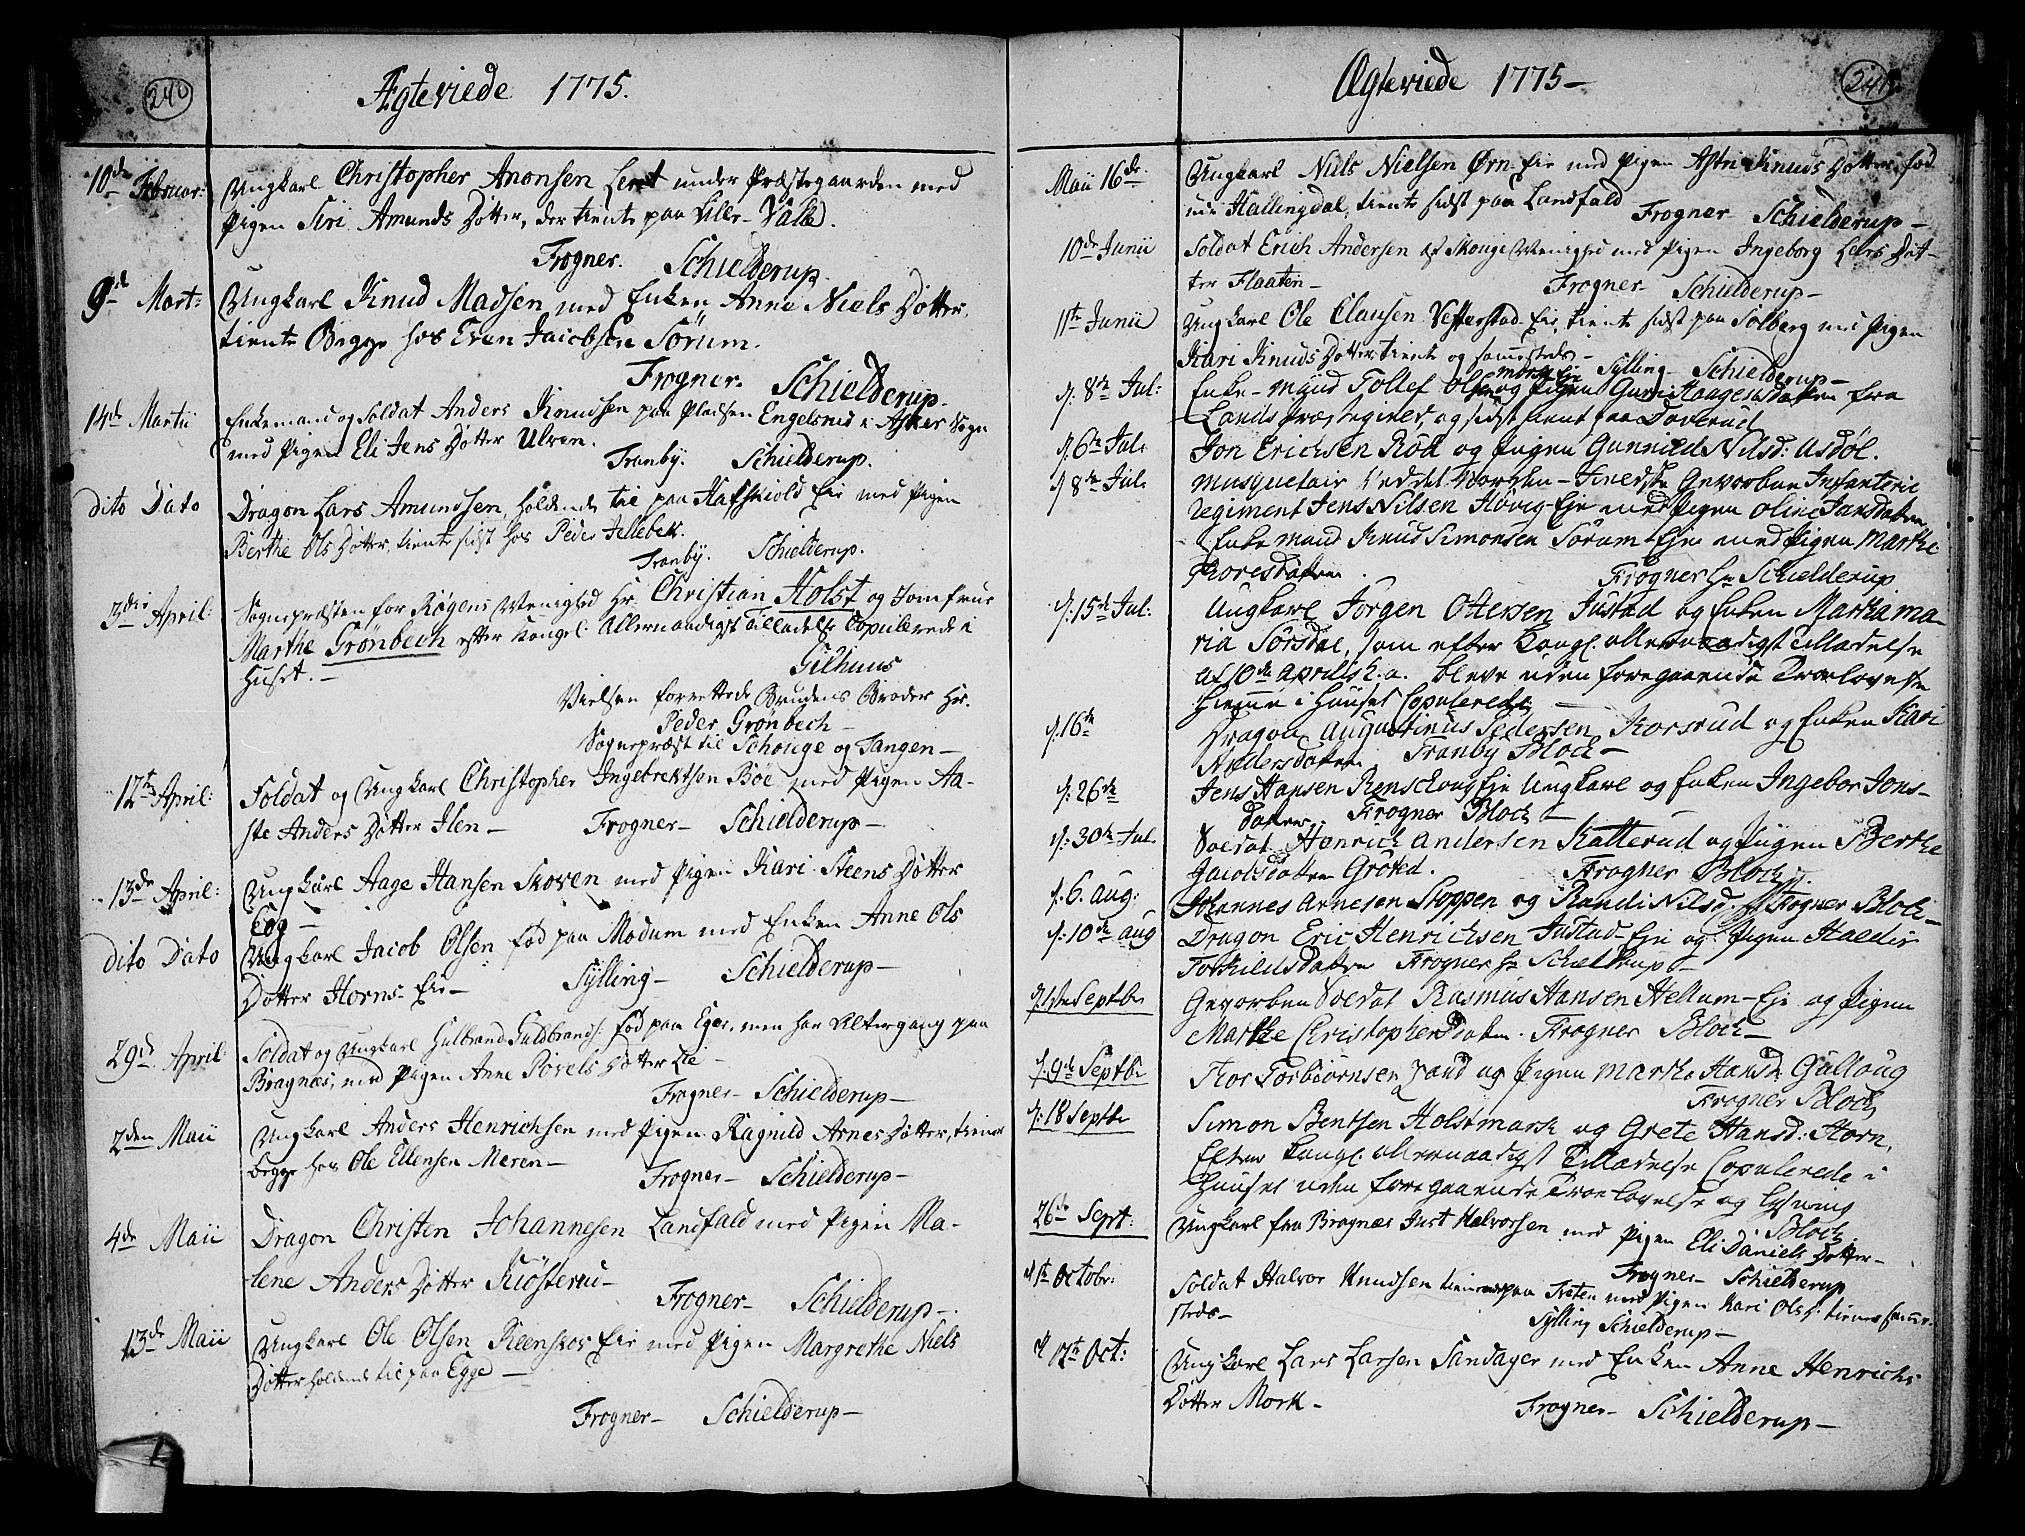 240
Ægteviede 1775.
10de Februar: Ungkarl Christopher Anonsen Leret under Præstegaarden med
Pigen Siri Amunds Dotter, der tiente paa Lille-Valle.
Frogner. Schielderup.
9de Mart: Ungkarl Knud Madsen med Enken Anne Niels Dotter,
tiente Begge hos Even Jacobsen Sørum.
Frogner. Schielderup.
14de Martii Enkemand og Soldat Anders Knudsen paa Pladsen Engelsrud i Asker Sogn
med Pigen Eli Jens Dotter Ulven.
Tranby. Schielderup.
dito Dato Dragon Lars Amundsen, holdende til paa Hafskiold Eie med Pigen
Berthe Ols Dotter, tiente sidst hos Peder Jellebek.
Tranby. Schielderup.
3die April: Sognepræsten for Røgens Menighed Hr. Christian Holst og Jomfrue
Marthe Grønbech efter Kongel: Allernaadigst Tilladelse Copulerede i
Huset. – Gilhuus
Vielsen forrettede Brudens Broder Hr.
Peder Grønbech –
Sognepræst til Schouge og Tangen –
12te April: Soldat og Ungkarl Christopher Ingebrektsen Böe med Pigen Aa-
ste Anders Dotter Ilen – Frogner – Schielderup –
13de April: Ungkarl Aage Hansen Skoven med Pigen Kari Steens Dotter
Eeg –
Dito Dato Ungkarl Jacob Olsen fød paa Modum med Enken Anne Ols
Dotter Horns-Eie – Sylling – Schielderup –
29de April: Soldat og Ungkarl Gulbrand Guldbrands: fød paa Eger, men har Altergang paa
Bragnæs, med Pigen Anne Povels Dotter Lie –
Frogner – Schielderup –
2den Maii Ungkarl Anders Henrichsen med Pigen Ragnild Arnes Dotter, tiener
begge hos Ole Ellensen Meren – Frogner – Schielderup –
4de Maii Dragon Christen Johannesen Landfald med Pigen Ma-
lene Anders Dotter Kiösterud –
Frogner – Schielderup –
13de Maii Ungkarl Ole Olsen Reenskov Eie med Pigen Margrethe Niels
Dotter holdende til paa Egge –
Frogner – Schielderup –
241
Ægteviede 1775 –
Maii 16de Ungkarl Niels Nielsen Ørn-Eie med Pigen Astri Knuds Dotter fød
udi Hallingdal, tiente sidst paa Landfald Frogner Schielderup –
10de Junii Soldat Erich Andersen af Skouge Menighed med Pigen Ingeborg Lars Dot-
ter Flaaten – Frogner Schielderup –
11te Junii Ungkarl Ole Clausen Vefferstad Eie, tiente sidst paa Solberg med Pigen
Kari Knuds Dotter tiente og sammesteds – Sylling – Schielderup –
d: 8de Jul: Enke-Mand Tollef Olsen og Pigen Guri Haagensdatter fra
Lands Præstegield, og sidst tient paa Doverud
d. 6te Jul: Jon Erichsen Röd og Pigen Gunnild Nilsd: Asdöl.
d 8de Jul: Musquetair ved det Norden-Fieldske Gevorben Infanterie
Regiment Jens Nilsen Hövig-Eje med Pigen Oline Jansdatter
Enke Mand Knud Simonsen Sörum Eje med Pigen Marthe
Thoresdatter. Frogner Hr Schielderup
d: 15de Jul: Ungkarl Jörgen Ottersen Justad og Enken Martha Ma-
ria Sörsdal, som efter Kongl. allernaadigst Tilladelse
af 10de Aprilis h.a. bleve uden foregaaende Troelovelse
hieme i Huuset Copulerede –
d: 16de Dragon Augustinus Pedersen Korsrud og Enken Kari
Andersdatter Tranby Bloch –
d: 26de Jens Hansen Renskoug Eje Ungkarl og Enken Ingebor Jons-
datter. Frogner Bloch –
d: 30te Jul. Soldat Henrich Andersen Katterud og Pigen Berthe
Jacobsdatter Gröted. Frogner Bloch
d. 6. Aug: Johannes Arnesen Stoppen og Randi Nilsd: Frogner Bloch –
d: 10de Aug Dragon Eric Henrichsen Justad Eje og Pigen Haldis
Torkildsdatter Frogner Hr Schielderup –
Septbr Gevorben Soldat Rasmus Hansen Hellum-Eje og Pigen
Marthe Christophersdatter. Frogner Bloch –
d. 9de Septbr Thor Torbiörnsen Zand og Pigen Marthe Hansd: Gulloug
Frogner Bloch
d: 18 Septbr Simon Bentsen Holstmark og Grete Hansd: Horn,
Efter Kongl allernaadigst Tilladelse Copulerede i
Huuset uden foregaaende Troelovelse og Lysning
Bloch.
26de Sept: Ungkarl fra Bragnæs Just Halvorsen med Pigen Eli Daniels Dotter –
Frogner – Schielderup
d 1te Octobr: Soldat Halvor Knudsen tienende paa Træten med Pigen Kari Olsd: tiener samme-
steds – Sylling Schielderup –
d 17te Oct: Ungkarl Lars Larsen Sandager med Enken Anne Henrichs
Dotter Mork – Frogner – Schielderup –